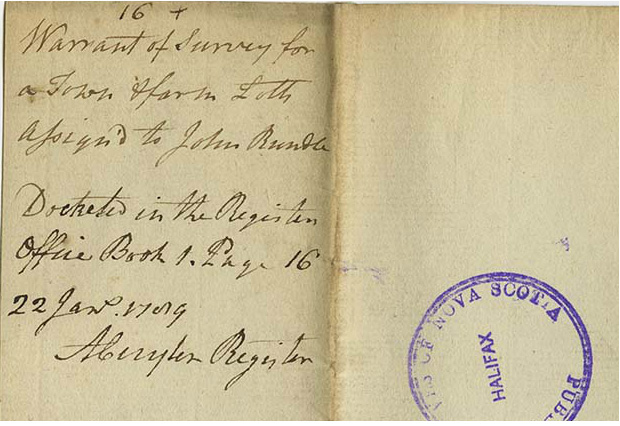 16 +
Warrant of Survey for
a Town & farm Lotts
Assign'd to John Rundle
Docketed in the Register
Office Book 1. Page 16
22 Jany. 1789
Register
OF NOVA SCOTIA
HALIFAX
PUB